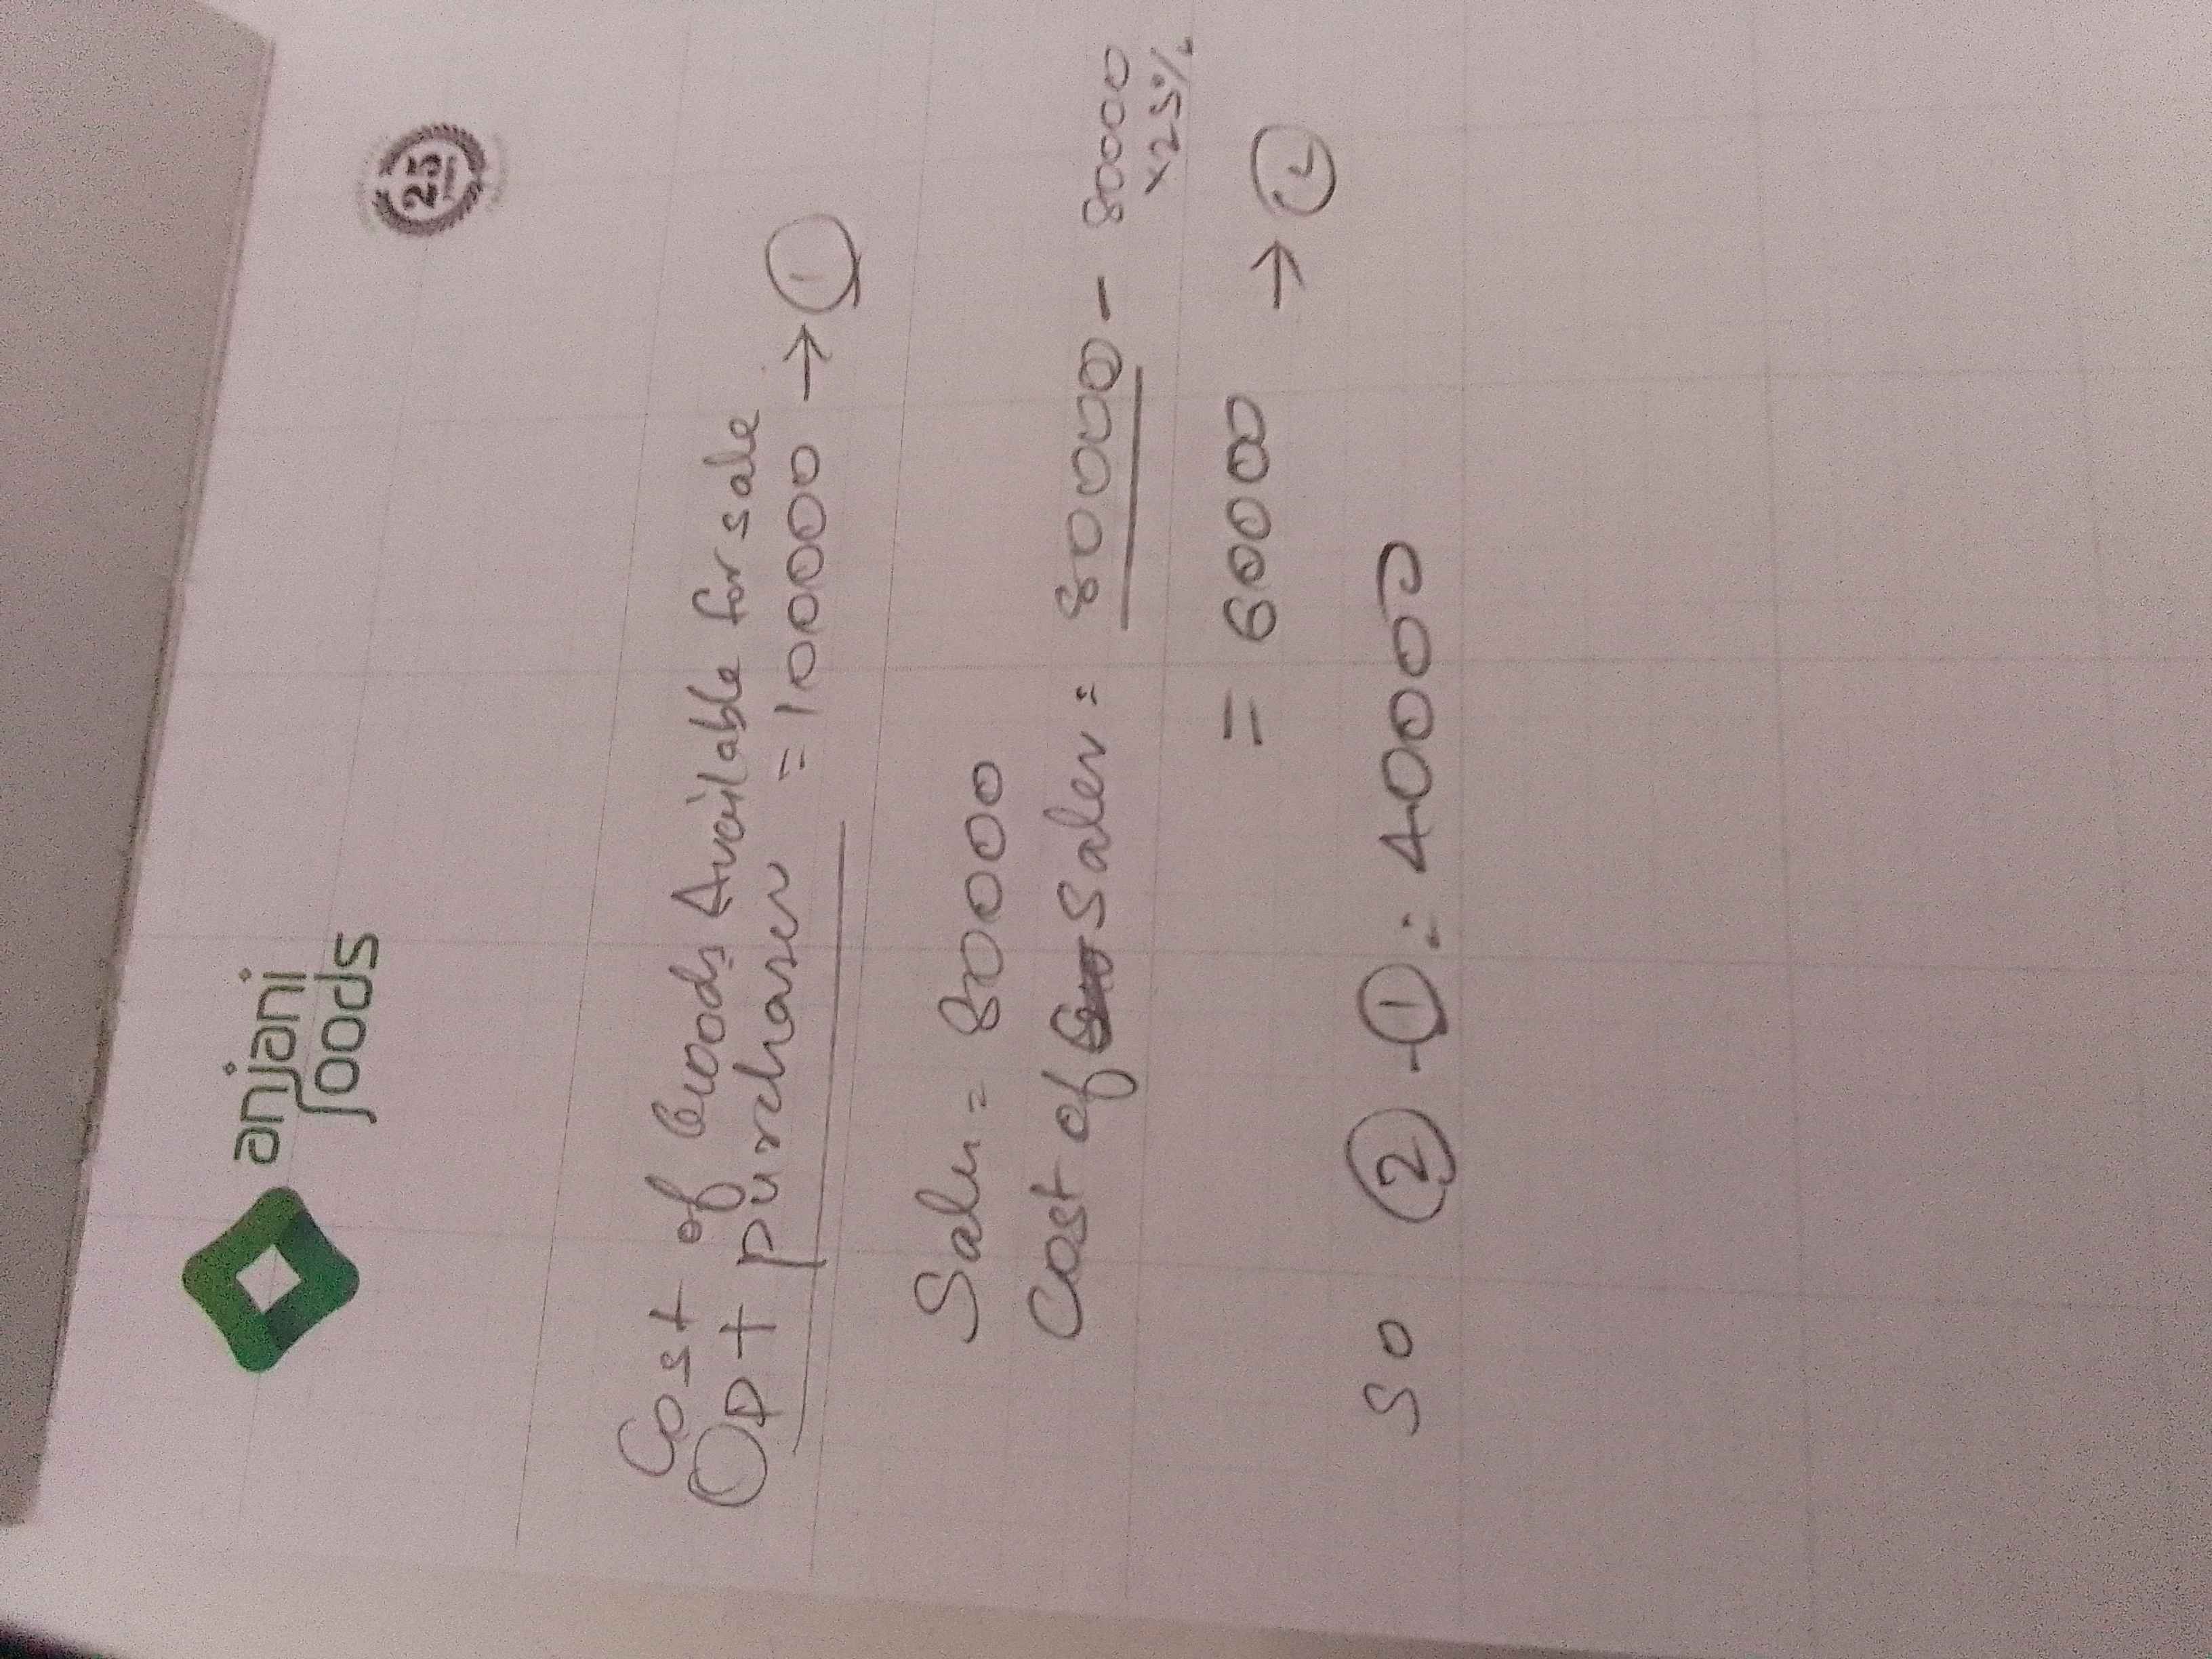 anjani
foods
25
Cost of Goods Available for sale
Op + purchases = 100000 → 1
Sales = 80000
Cost of Sales = 80000 - 80000
×25%
= 60000 → 2
So 2 - 1 = 40000